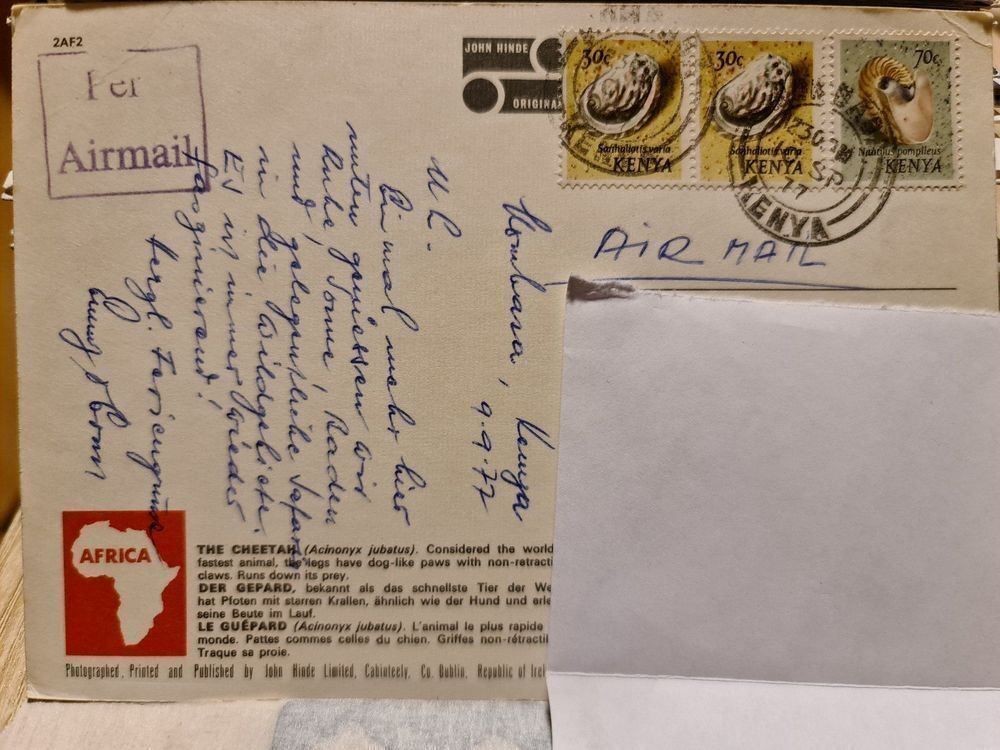 2AF2
Per
Airmail
JOHN HINDE
ORIGINA
30c
Sanhaliotis varia
KENYA
30c
Sanhaliotis varia
KENYA
70c
Nautilus pompileus
KENYA
SP
77
KENYA
AIR MAIL
Mombasa, Kenya
9.9.77
M L.
Einmal mehr hier
unten geniessen wir
Ruhe, Sonne, Baden
und gelegentliche Safaris
in die Wildgebiete.
Es ist immer wieder
faszinierend!
Herzl. Feriengrüsse
AFRICA
THE CHEETAH (Acinonyx jubatus). Considered the world
fastest animal, the legs have dog-like paws with non-retracti
claws. Runs down its prey.
DER GEPARD, bekannt als das schnellste Tier der We
hat Pfoten mit starren Krallen, ähnlich wie der Hund und erle
seine Beute im Lauf.
LE GUÉPARD (Acinonyx jubatus). L'animal le plus rapide
monde. Pattes commes celles du chien. Griffes non-rétractil
Traque sa proie.
Photographed, Printed and Published by John Hinde Limited, Cabinteely, Co. Dublin, Republic of Irel